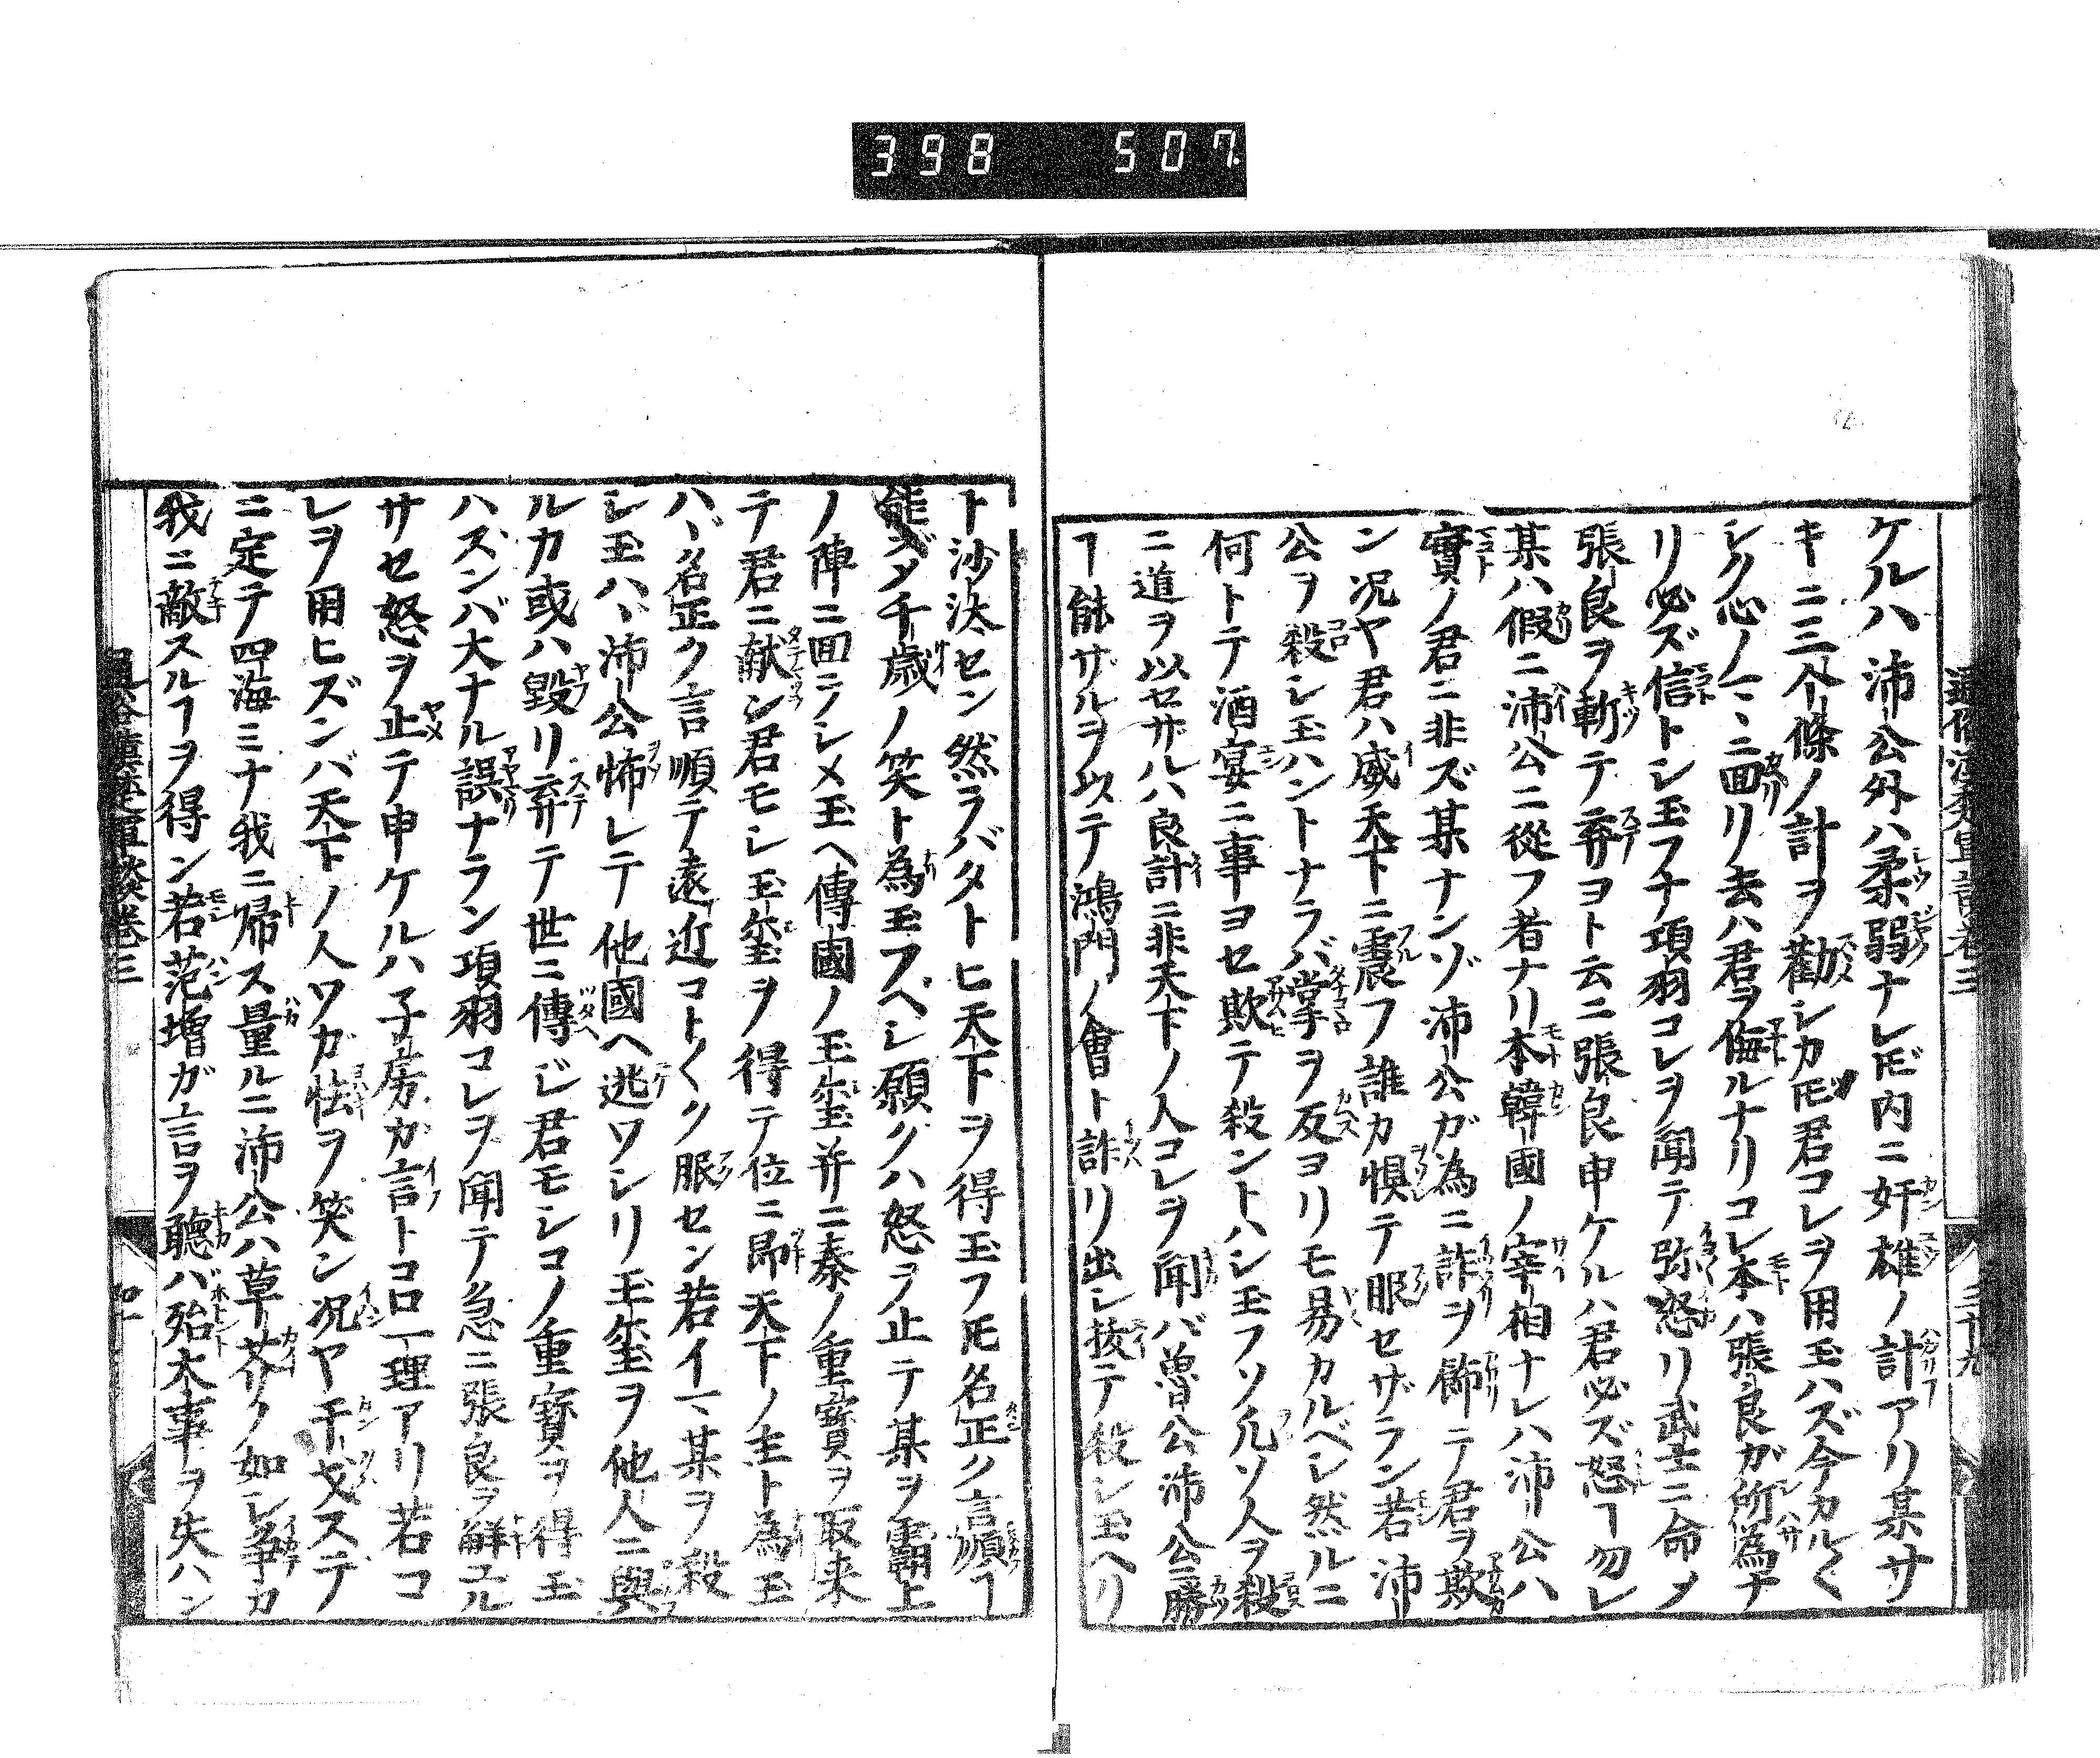 398 507
通俗漢楚軍談卷三
三十九
ケルハ沛公外ハ柔弱ナレ𪜈内ニ奸雄ノ計アリ某サ
キニ三个條ノ計ヲ勸シカ𪜈君コレヲ用玉ハズ今カル〱
シク心ノ一ニ回リ去ハ君ヲ侮ルナリコレ本ハ張良ガ所為ナ
リ必ズ信トシ玉フナ項羽コレヲ聞テ弥怒リ武士ニ命〆
張良ヲ斬テ弃ヨト云ニ張良申ケルハ君必ズ怒ヿ勿レ
某ハ假ニ沛公ニ從フ者ナリ本韓國ノ宰相ナレハ沛公ハ
實ノ君ニ非ズ某ナンゾ沛公ガ為ニ詐ヲ餙テ君ヲ欺
ン况ヤ君ハ威天下ニ震フ誰カ惧テ服セザラン若沛
公ヲ殺シ玉ハントナラバ掌ヲ反ヨリモ易カルベシ然ルニ
何トテ酒宴ニ事ヨセ欺テ殺ントハシ玉フソ凢ソ人ヲ殺
ニ道ヲ以セザルハ良計ニ非天下ノ人コレヲ聞バ魯公沛公ニ勝
ヿ能ザルヲ以テ鴻門ノ會ト詐リ出シ拔テ殺シ玉ヘリ
ト沙汰セン然ラバタトヒ天下ヲ得玉フ𪜈名正ク言順ヿ
能ズ〆千歳ノ笑ト為玉フベシ願クハ怒ヲ止テ某ヲ霸上
ノ陣ニ回ラシメ玉ヘ傳國ノ玉璽并ニ秦ノ重寳ヲ取来
テ君ニ献ン君モシ玉璽ヲ得テ位ニ即天下ノ主ト為玉
ハヾ名正ク言順テ遠近コト〱ク服セン若イマ某ヲ殺
シ玉ハヾ沛公怖レテ他國ヘ逃ワシリ玉璽ヲ他人ニ與
ルカ或ハ毀リ弃テ世ニ傳ジ君モシコノ重寳ヲ得玉
ハズンバ大ナル誤ナラン項羽コレヲ聞テ急ニ張良ヲ觧ユル
サセ怒ヲ止テ申ケルハ子房カ言トコロ一理アリ若コ
レヲ用ヒズンバ天下ノ人ワガ怯ヲ笑ン况ヤ干戈ステ
ニ定テ四海ミナ我ニ帰ス量ルニ沛公ハ草芥ノ如シ爭カ
我ニ敵スルヿヲ得ン若范増ガ言ヲ聽バ殆大事ヲ失ハン
通俗漢楚軍談卷三